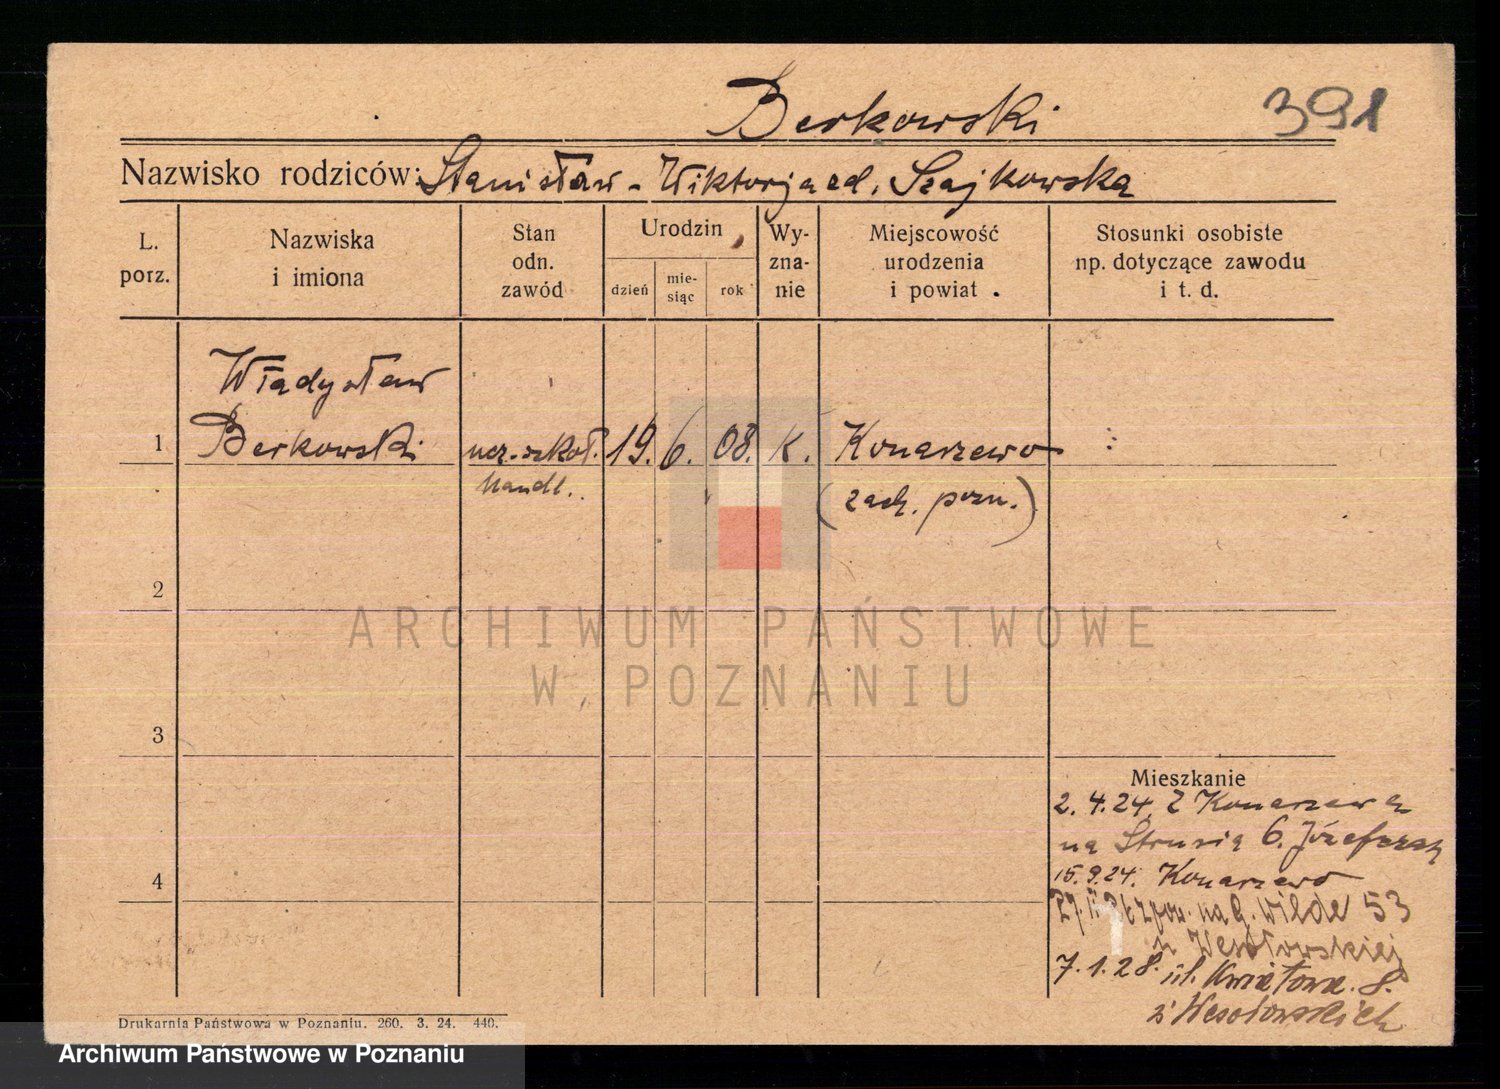 Berkowski
391
Nazwisko rodziców: Stanisław - Wiktorja Szajkowska
L. porz.
Nazwiska i imiona
Stan odn. zawód
Urodzin
dzień
miesiąc
rok
Wyznanie
Miejscowość urodzenia i powiat
Stosunki osobiste np. dotyczące zawodu i t. d.
Władysław
1 Berkowski ucz. szkoł. 19. 6. 08. K. Konarzewo
handl.
(zach. pozn.)
2
3
4
ARCHIWUM PAŃSTWOWE
W POZNANIU
Mieszkanie
2. 4. 24. Z Konarzewa
na Strusia 6.
15. 9. 24. Konarzewo
na G. Wilde 53
u Wesołowskiej
7. 1. 28. ul. Kwiatowa. 8.
Drukarnia Państwowa w Poznaniu. 260. 3. 24. 440.
Archiwum Państwowe w Poznaniu